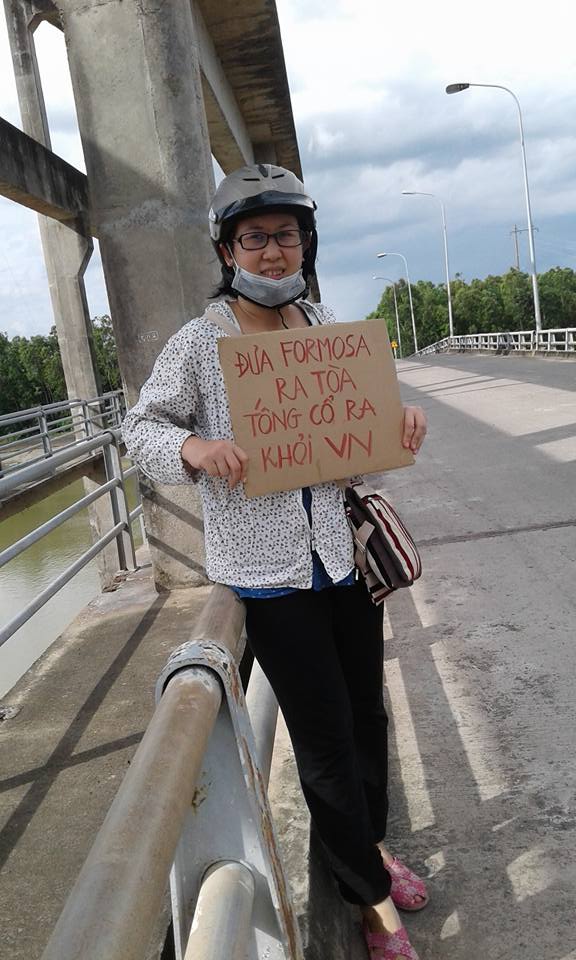 ĐƯA FORMOSA
RA TÒA
TỐNG CỔ RA
KHỎI VN